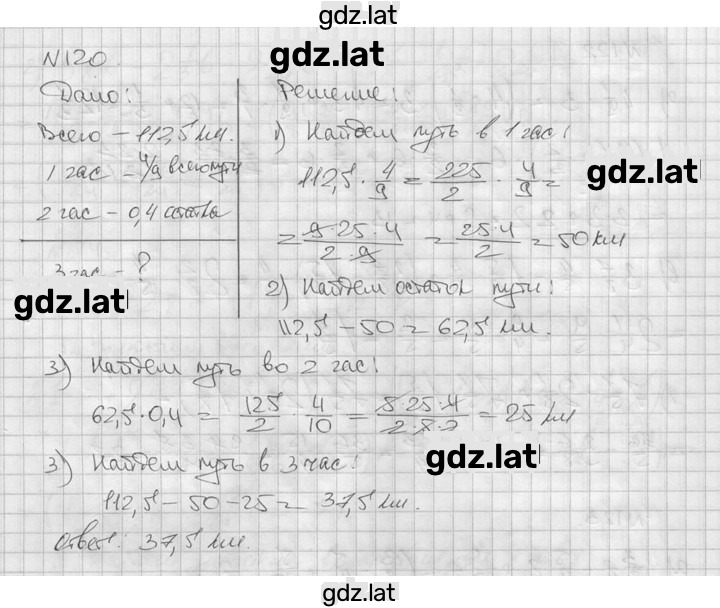 gdz.lat
N120.
gdz.lat
Дано:
Всего – 112,5 км.
1 час – 4/9 всего пути
2 час – 0,4 остатка
3 час – ?
gdz.lat
Решение:
1) Найдем путь в 1 час:
112,5 · 4/9 = 225/2 · 4/9 =
gdz.lat
= 9·25·4/2·9 = 25·4/2 = 50 км
2) Найдем остаток пути:
112,5 – 50 = 62,5 км.
3) Найдем путь во 2 час:
62,5·0,4 = 125/2 · 4/10 = 5·25·4/2·5·2 = 25 км
3) Найдем путь в 3 час:
gdz.lat
112,5 – 50 – 25 = 37,5 км.
Ответ: 37,5 км.
gdz.lat